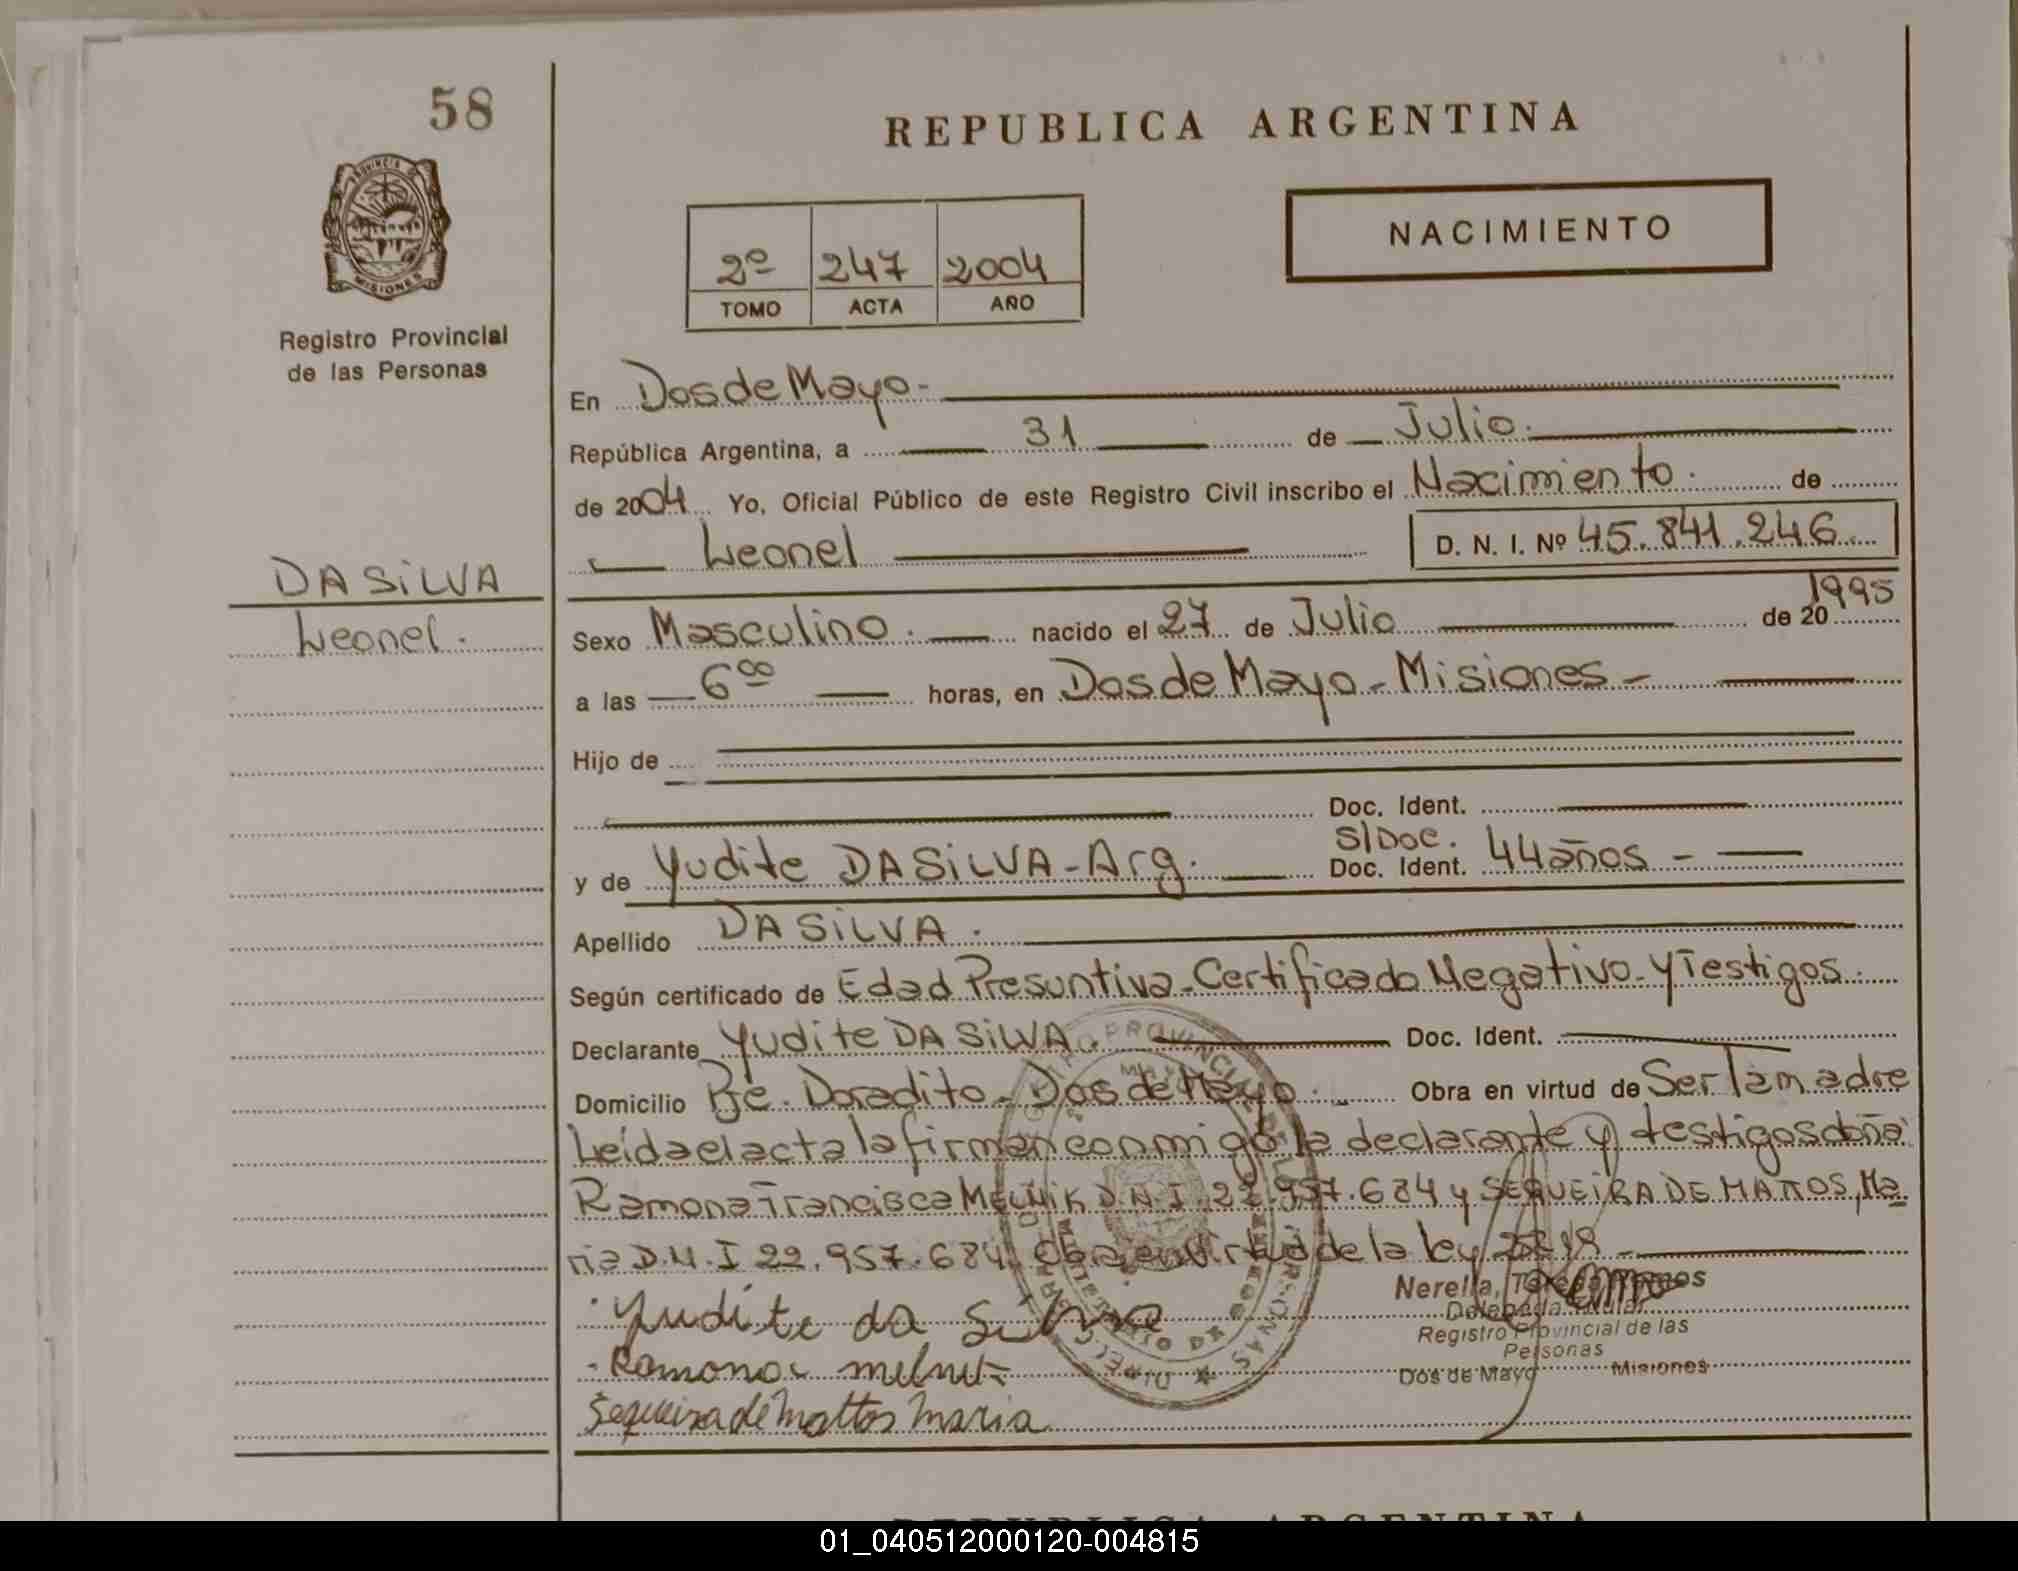 58
REPUBLICA ARGENTINA
PROVINCIA DE
MISIONES
Registro Provincial
de las Personas
2º 247 2004
TOMO ACTA AÑO
NACIMIENTO
En Dos de Mayo.
República Argentina, a 31 de Julio.
de 2004 Yo, Oficial Público de este Registro Civil inscribo el Nacimiento. de
Leonel D. N. I. Nº 45.841.246
DA SiLVA
Leonel.
Sexo Masculino. nacido el 27 de Julio de 20 1995
a las 6 00 horas, en Dos de Mayo - Misiones -
Hijo de
Doc. Ident.
S/Doc.
y de Yudite DA SiLVA - Arg. Doc. Ident. 44 años -
Apellido DA SiLVA.
Según certificado de Edad Presuntiva - Certificado Negativo - y Testigos.
Declarante Yudite DA SiLVA. Doc. Ident.
Domicilio Bje. Doradito - Dos de Mayo. Obra en virtud de Ser la madre
Leída el acta la firman conmigo la declarante y testigos doña:
Ramona Francisca MELNiK D.N.I 22.957.684 y SEQUEIRA DE MATTOS, Ma
ria D.N.I 22.957.684. Obra en virtud de la ley
Yudite da Silva
Ramona melnik
Sequeira de mattos maria
Nerella,
Delegada Titular
Registro Provincial de las
Personas
Dos de Mayo Misiones
REPUBLICA ARGENTINA
01_040512000120-004815